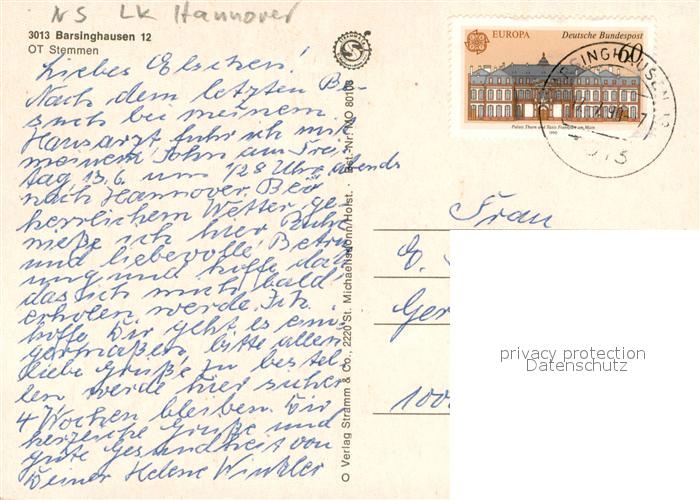 NS LK Hannover
3013 Barsinghausen 12
OT Stemmen
Liebes Elschen!
Nach dem letzten Be-
such bei meinem
Hausarzt fuhr ich mit
meinem Sohn am Frei-
tag 13.6. um 1/2 8 Uhr abends
nach Hannover. Bei
herrlichem Wetter ge-
nieße ich hier Ruhe
und liebevolle Betreu
ung und hoffe doch
das ich mich bald
erholen werde. Ich
hoffe Dir geht es eini
germaßen, bitte allen
liebe Grüße zu bestel-
len werde hier sicher
4 Wochen bleiben. Dir
herzliche Grüße und
gute Gesundheit von
Deiner Helene Winkler
© Verlag Stramm & Co., 2220 St. Michaelisdonn/Holst. · Best.-Nr. MO 80108
EUROPA
Deutsche Bundespost
60
Palais Thurn und Taxis Frankfurt am Main
1990
SINGHAUSEN 12
3013
Frau
E.
Ger
100
privacy protection
Datenschutz